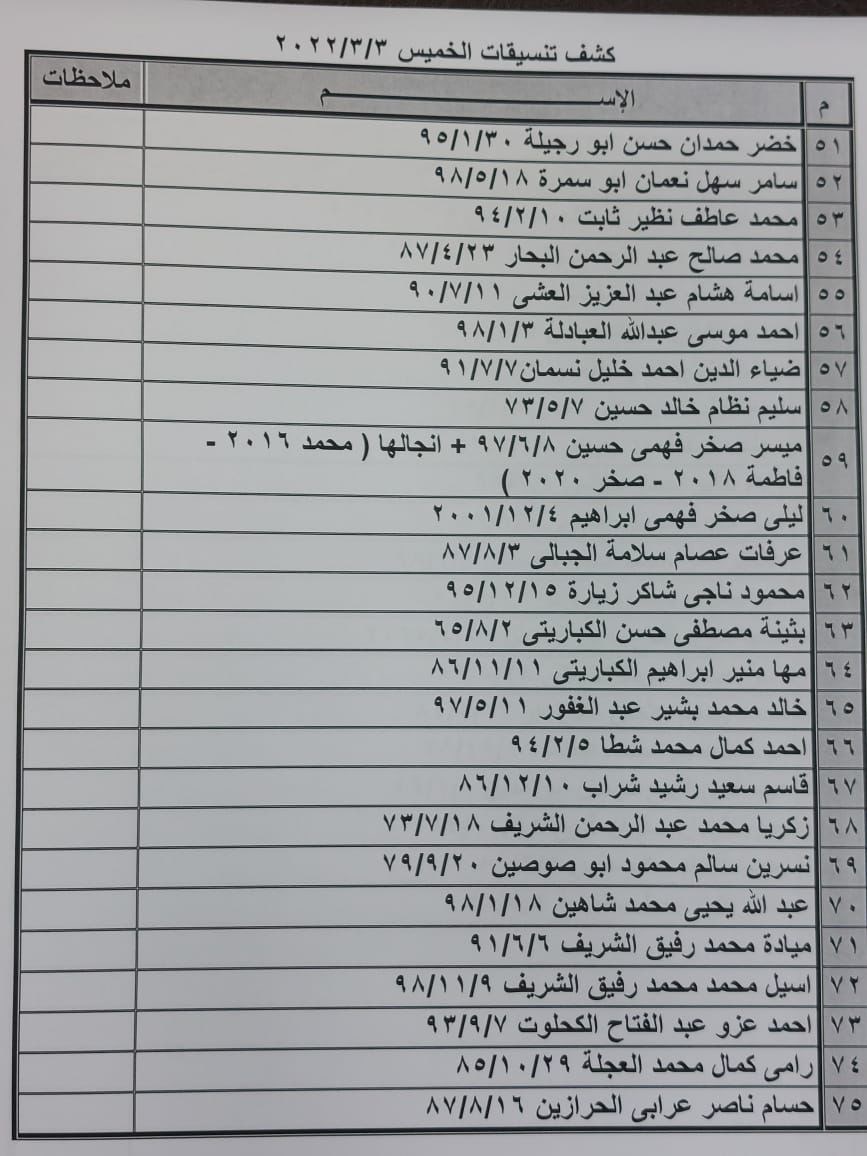 كشف تنسيقات الخميس ٢٠٢٢/٣/٣
م الإســـــــــــــــــم ملاحظات
٥١ خضر حمدان حسن ابو رجيلة ٩٥/١/٣٠
٥٢ سامر سهل نعمان ابو سمرة ٩٨/٥/١٨
٥٣ محمد عاطف نظير ثابت ٩٤/٢/١٠
٥٤ محمد صالح عبد الرحمن البحار ٨٧/٤/٢٣
٥٥ اسامة هشام عبد العزيز العشى ٩٠/٧/١١
٥٦ احمد موسى عبدالله العبادلة ٩٨/١/٣
٥٧ ضياء الدين احمد خليل نسمان٩١/٧/٧
٥٨ سليم نظام خالد حسين ٧٣/٥/٧
٥٩ ميسر صخر فهمى حسين ٩٧/٦/٨ + انجالها ( محمد ٢٠١٦ -
فاطمة ٢٠١٨ - صخر ٢٠٢٠ )
٦٠ ليلى صخر فهمى ابراهيم ٢٠٠١/١٢/٤
٦١ عرفات عصام سلامة الجبالى ٨٧/٨/٣
٦٢ محمود ناجى شاكر زيارة ٩٥/١٢/١٥
٦٣ بثينة مصطفى حسن الكباريتى ٦٥/٨/٢
٦٤ مها منير ابراهيم الكباريتى ٨٦/١١/١١
٦٥ خالد محمد بشير عبد الغفور ٩٧/٥/١١
٦٦ احمد كمال محمد شطا ٩٤/٢/٥
٦٧ قاسم سعيد رشيد شراب ٨٦/١٢/١٠
٦٨ زكريا محمد عبد الرحمن الشريف ٧٣/٧/١٨
٦٩ نسرين سالم محمود ابو صوصين ٧٩/٩/٢٠
٧٠ عبد الله يحيى محمد شاهين ٩٨/١/١٨
٧١ ميادة محمد رفيق الشريف ٩١/٦/٦
٧٢ اسيل محمد محمد رفيق الشريف ٩٨/١١/٩
٧٣ احمد عزو عبد الفتاح الكحلوت ٩٣/٩/٧
٧٤ رامى كمال محمد العجلة ٨٥/١٠/٢٩
٧٥ حسام ناصر عرابى الحرازين ٨٧/٨/١٦